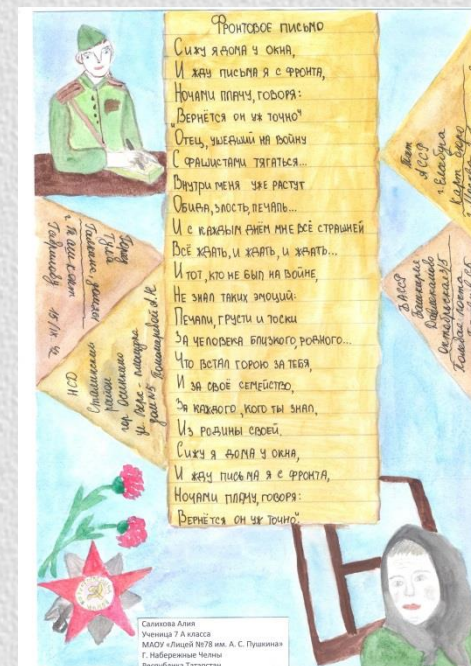 Фронтовое письмо
Сижу я дома у окна,
И жду письма я с фронта,
Ночами плачу, говоря:
"Вернётся он уж точно"
Отец, ушедший на войну
С фашистами тягаться...
Внутри меня уже растут
Обида, злость, печаль...
И с каждым днём мне всё страшней
Всё ждать, и ждать, и ждать...
И тот, кто не был на войне,
Не знал таких эмоций:
Печали, грусти и тоски
За человека близкого, родного...
Что встал горою за тебя,
И за своё семейство,
За каждого, кого ты знал,
Из Родины своей.
Сижу я дома у окна,
И жду письма я с фронта,
Ночами плачу, говоря:
Вернётся он уж точно".
Тат
АССР
г. Елабуга
БАССР
Башкирия
Октябрьская
НСО
Сталинский
район
гор. Осинники
Салихова Алия
Ученица 7 А класса
МАОУ «Лицей №78 им. А. С. Пушкина»
Г. Набережные Челны
Республика Татарстан